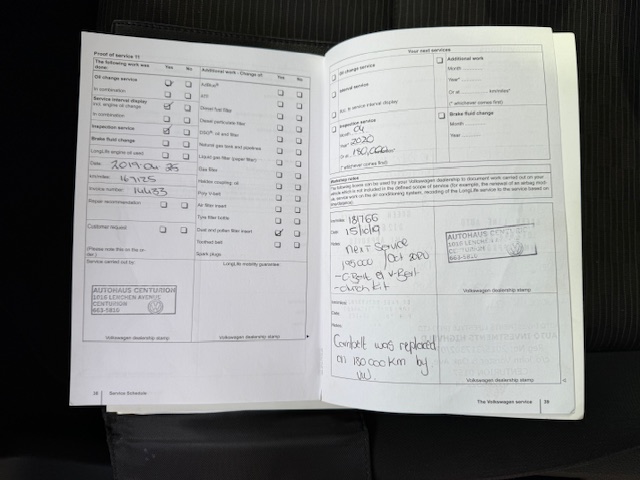 Proof of service 11
The following work was done:
Yes No
Additional work - Change of:
Yes No
Oil change service
In combination
Service interval display
incl. engine oil change
In combination
Inspection service
Brake fluid change
LongLife engine oil used
Date: 2019 04 25
km/miles: 167125
Invoice number: 14433
Repair recommendation
Customer request
(Please note this on the order.)
AdBlue®
ATF
Diesel fuel filter
Diesel particulate filter
DSG® oil and filter
Natural gas tank and pipelines
Liquid gas filter (paper filter)
Gas filter
Haldex coupling: oil
Poly V-belt
Air filter insert
Tyre filler bottle
Dust and pollen filter insert
Toothed belt
Spark plugs
Service carried out by:
LongLife mobility guarantee
AUTOHAUS CENTURION
1016 LENCHEN AVENUE
CENTURION
663-5810
Volkswagen dealership stamp
Volkswagen dealership stamp
38 Service Schedule
Your next services
Oil change service
Interval service
Acc. to service interval display
Inspection service
Month 04
Year* 2020
Or at 180,000 km
(* whichever comes first)
Additional work
Month
Year*
Or at km/miles*
(* whichever comes first)
Brake fluid change
Month
Year
Workshop notes
The following boxes can be used by your Volkswagen dealership to document work carried out on your
km/miles 181766
Date 15/10/19
Notes
Next Service
195000 / Oct 2020
- C.Belt & V-Belt
- clutch kit
AUTOHAUS CENTURION
1016 LENCHEN AV
CENTURION
663-5810
Volkswagen dealership stamp
km/miles
Date
Notes
Cambelt was replaced
on 180 000 km by
VW.
Volkswagen dealership stamp
The Volkswagen service 39